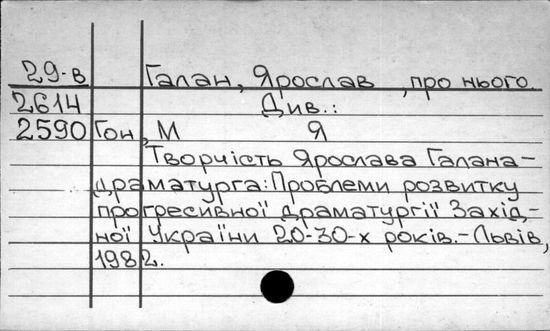 29-в Галан, Ярослав, про нього.
2614 Див.:
2590 Гон, М Я
Творчість Ярослава Галана-
драматурга: Проблеми розвитку
прогресивної драматургії Захід-
ної України 20-30-х років.-Львів,
1982.